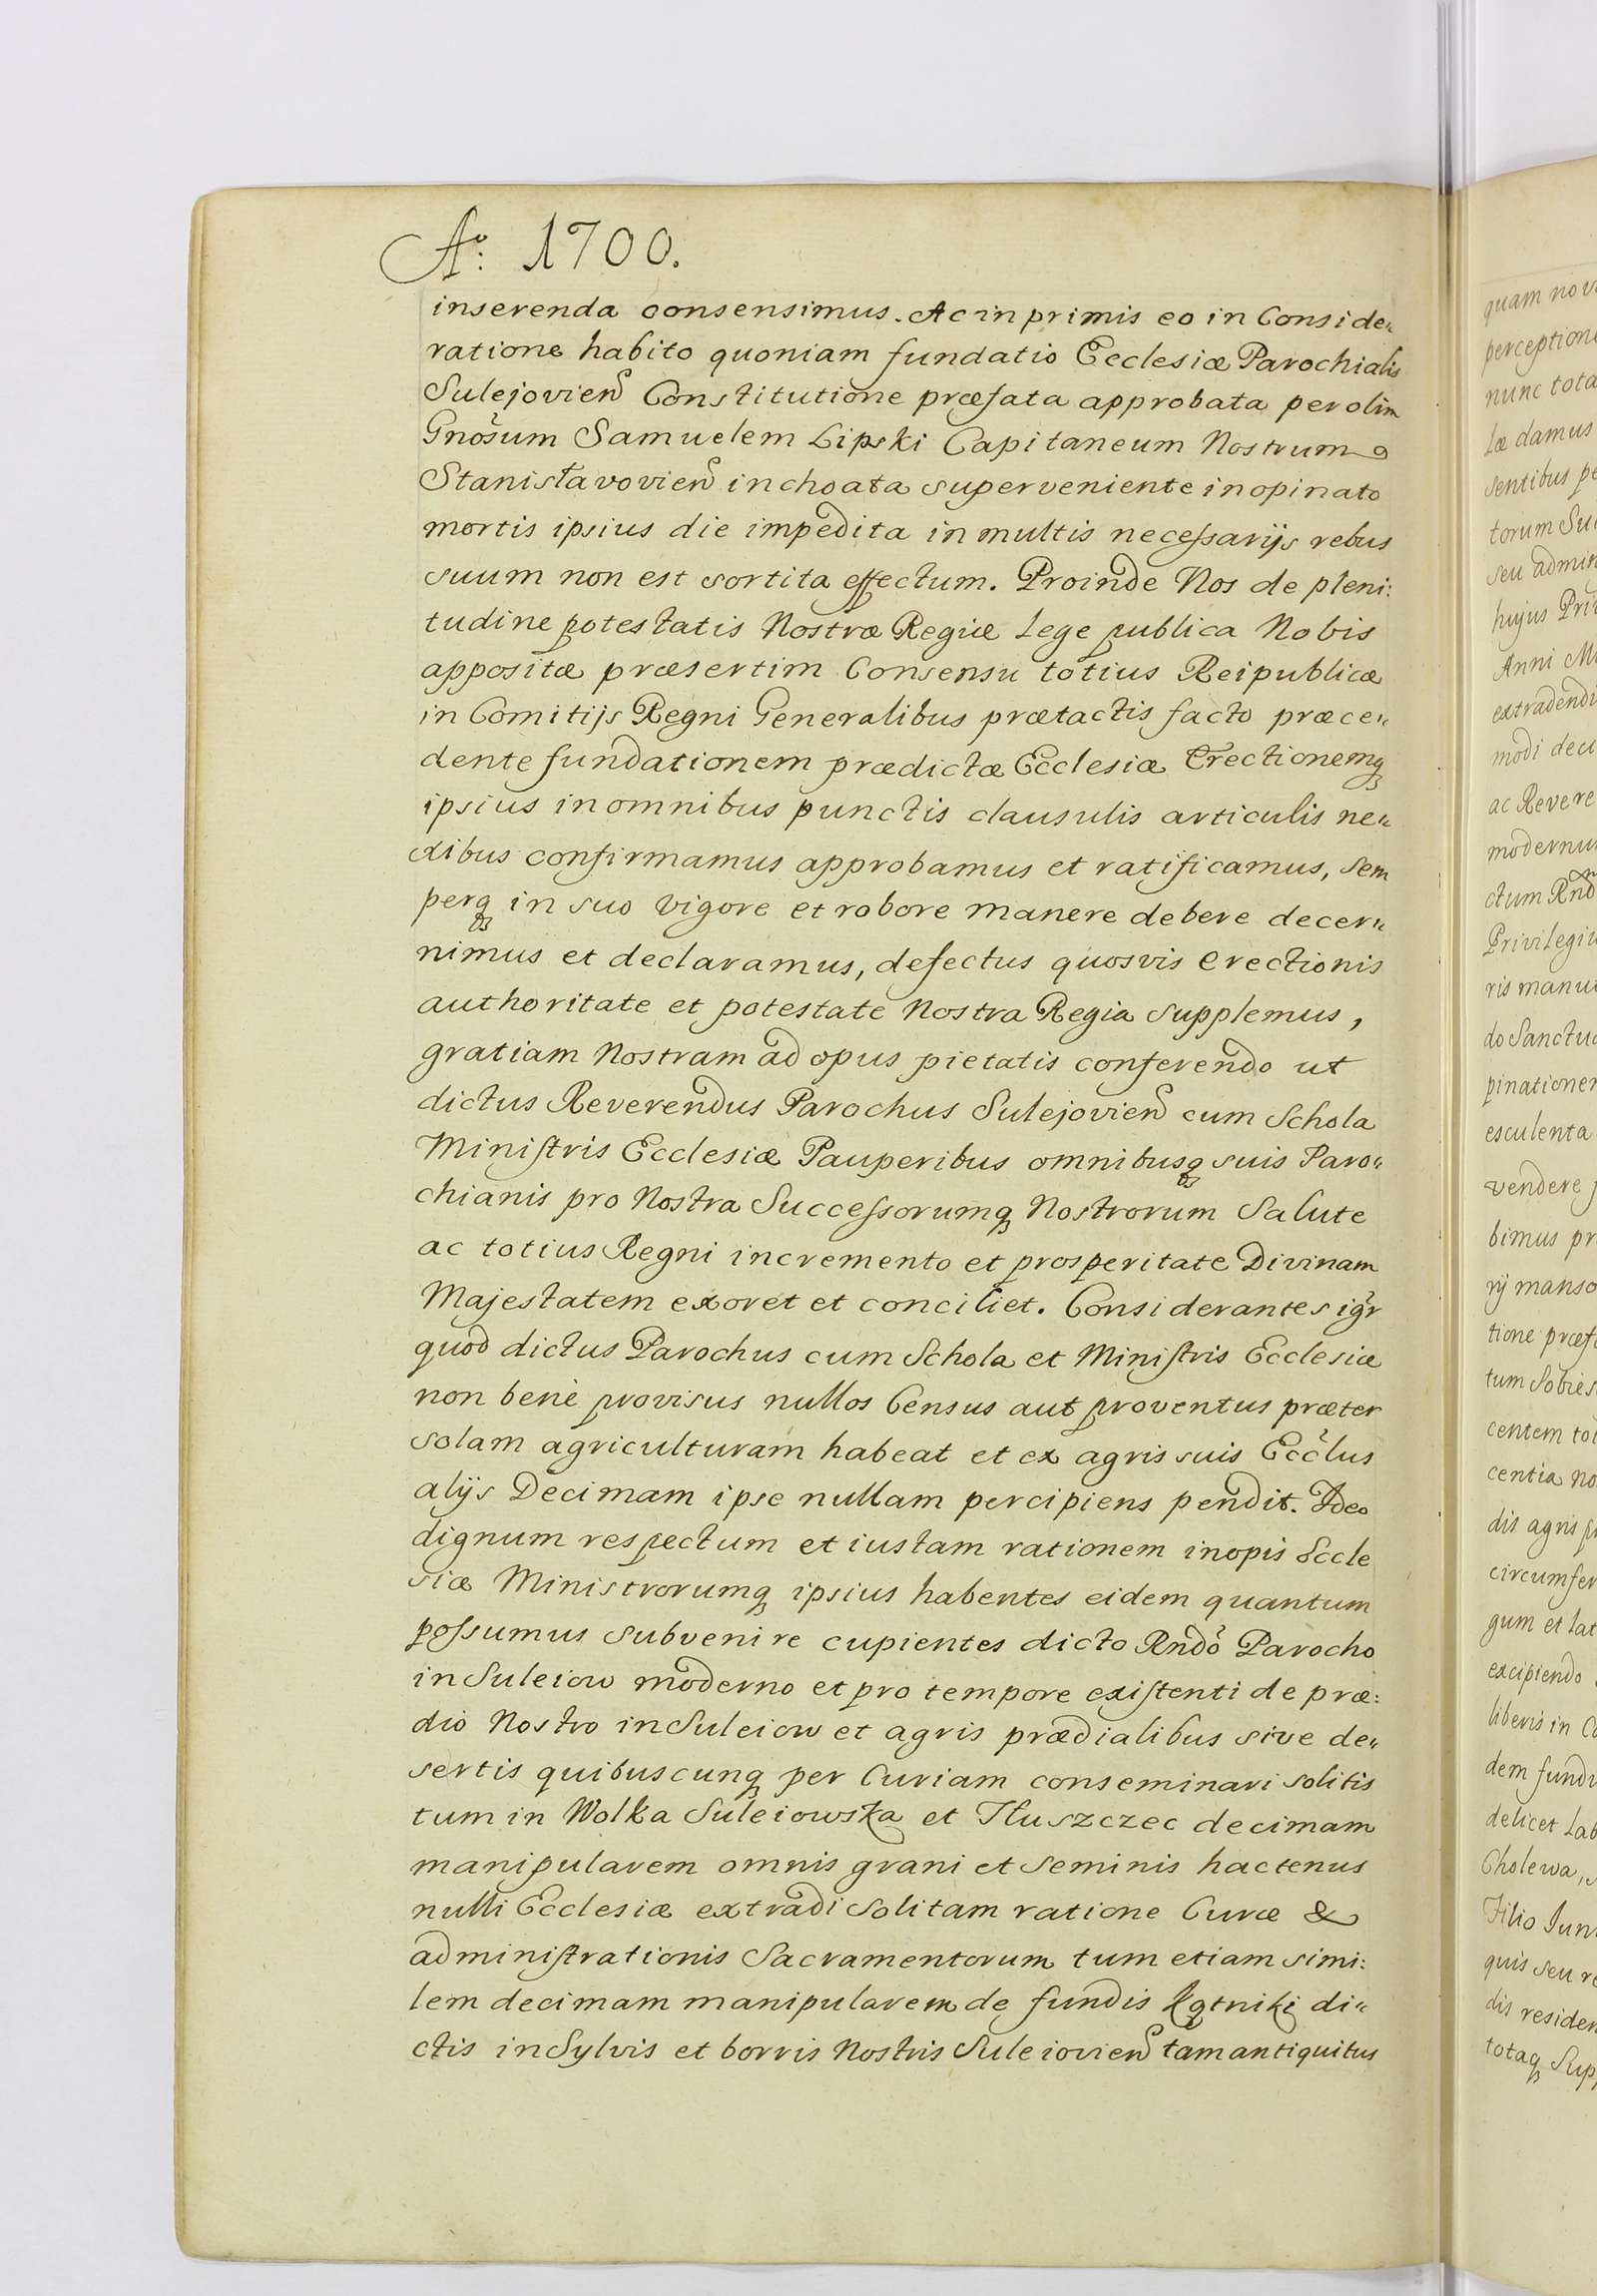 Aº: 1700.
inserenda consensimus. Ac in primis eo in Conside„
ratione habito quoniam fundatio Ecclesiæ Parochialis
Sulejovien Constitutione præfata approbata per olim
Gnosum Samuelem Lipski Capitaneum Nostrum
Stanisłavovien inchoata superveniente inopinato
mortis ipsius die impedita in multis neceſsarijs rebus
suum non est sortita effectum. Proinde Nos de pleni:
tudine potestatis Nostræ Regiæ Lege publica Nobis
appositæ præsertim Consensu totius Reipublicæ
in Comitijs Regni Generalibus prætactis facto præce„
dente fundationem prædictæ Ecclesiæ Erectionemq
ipsius in omnibus punctis clausulis articulis ne„
xibus confirmamus approbamus et ratificamus, Sem
perq in suo vigore et robore manere debere decer„
nimus et declaramus, defectus quosvis erectionis
authoritate et potestate Nostra Regia Supplemus,
gratiam Nostram ad opus pietatis conferendo ut
dictus Reverendus Parochus Sulejovien cum Schola
Miniſtris Ecclesiæ Pauperibus omnibusq suis Paro„
chianis pro Nostra Succeſsorumq Nostrorum Salute
ac totius Regni incremento et prosperitate Divinam
Majestatem exoret et conciliet. Considerantes igr
quod dictus Parochus cum Schola et Miniſtris Ecclesiæ
non benè provisus nullos Census aut proventus præter
solam agriculturam habeat et ex agris suis Ecclus
alijs Decimam ipse nullam percipiens pendit. Ideo
dignum respectum et iustam rationem inopis Eccle
siæ Ministrorumq ipsius habentes eidem quantum
poſsumus subvenire cupientes dicto Rndo Parocho
in Suleiow moderno et pro tempore exiſtenti de præ:
dio Nostro in Suleiow et agris prædialibus sive de„
sertis quibuscunq per Curiam conseminari solitis
tum in Wolka Suleiowska et Tłuszczec decimam
manipularem omnis grani et seminis hactenus
nulli Ecclesiæ extradi Solitam ratione Curæ &
adminiſtrationis Sacramentorum tum etiam simi:
lem decimam manipularem de fundis Kątniki di„
ctis in Sylvis et borris Nostris Suleiovien tam antiquitus
quam nov
perceptione
nunc tota
læ damus
sentibus pe
torum Su
seu admin
hujus Pri
Anni M
extradendi
modi deci
ac Revere
modernu
ctum Rnd
Privilegiu
ris manu
do Sanctu
pinationem
esculenta
vendere
bimus pr
rij manso
tione præf
tum Sobies
centem to
centia no
dis agris p
circumfer
gum et lat
excipiendo
liberis in C
dem fund
delicet Lab
Cholewa,
Filio Jun
quis seu re
dis residen
totaq Sup